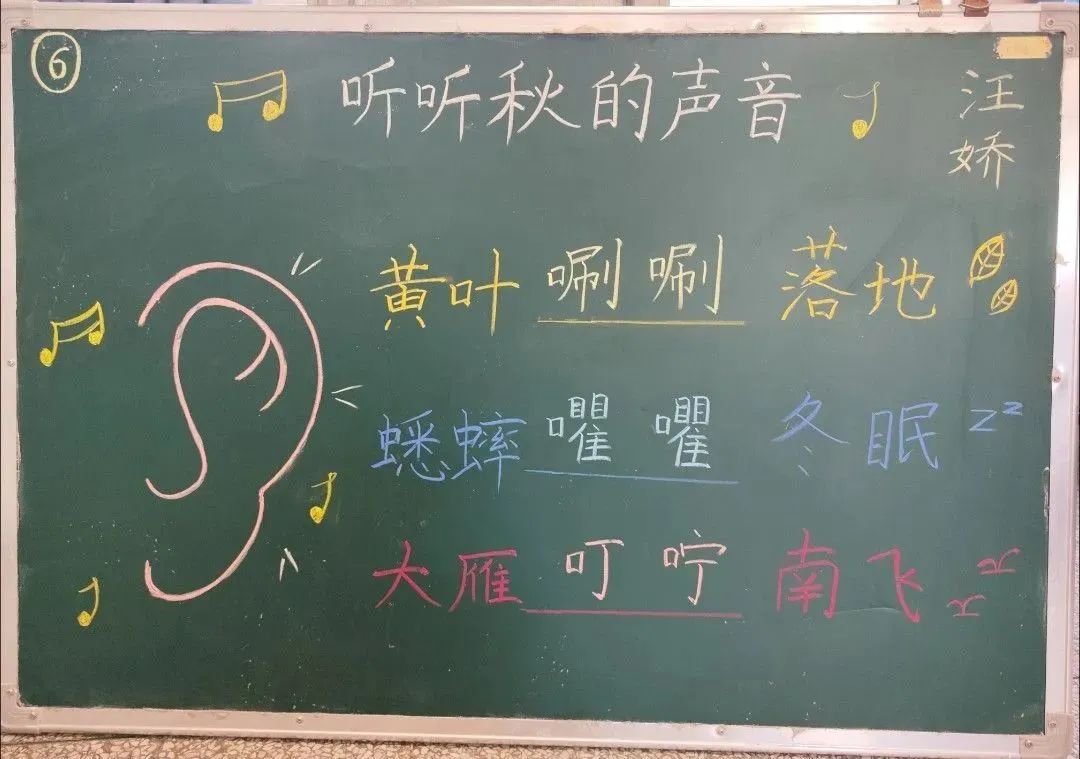 ⑥
听听秋的声音
汪
娇
黄叶唰唰落地
蟋蟀嚁嚁冬眠 zz
大雁叮咛南飞